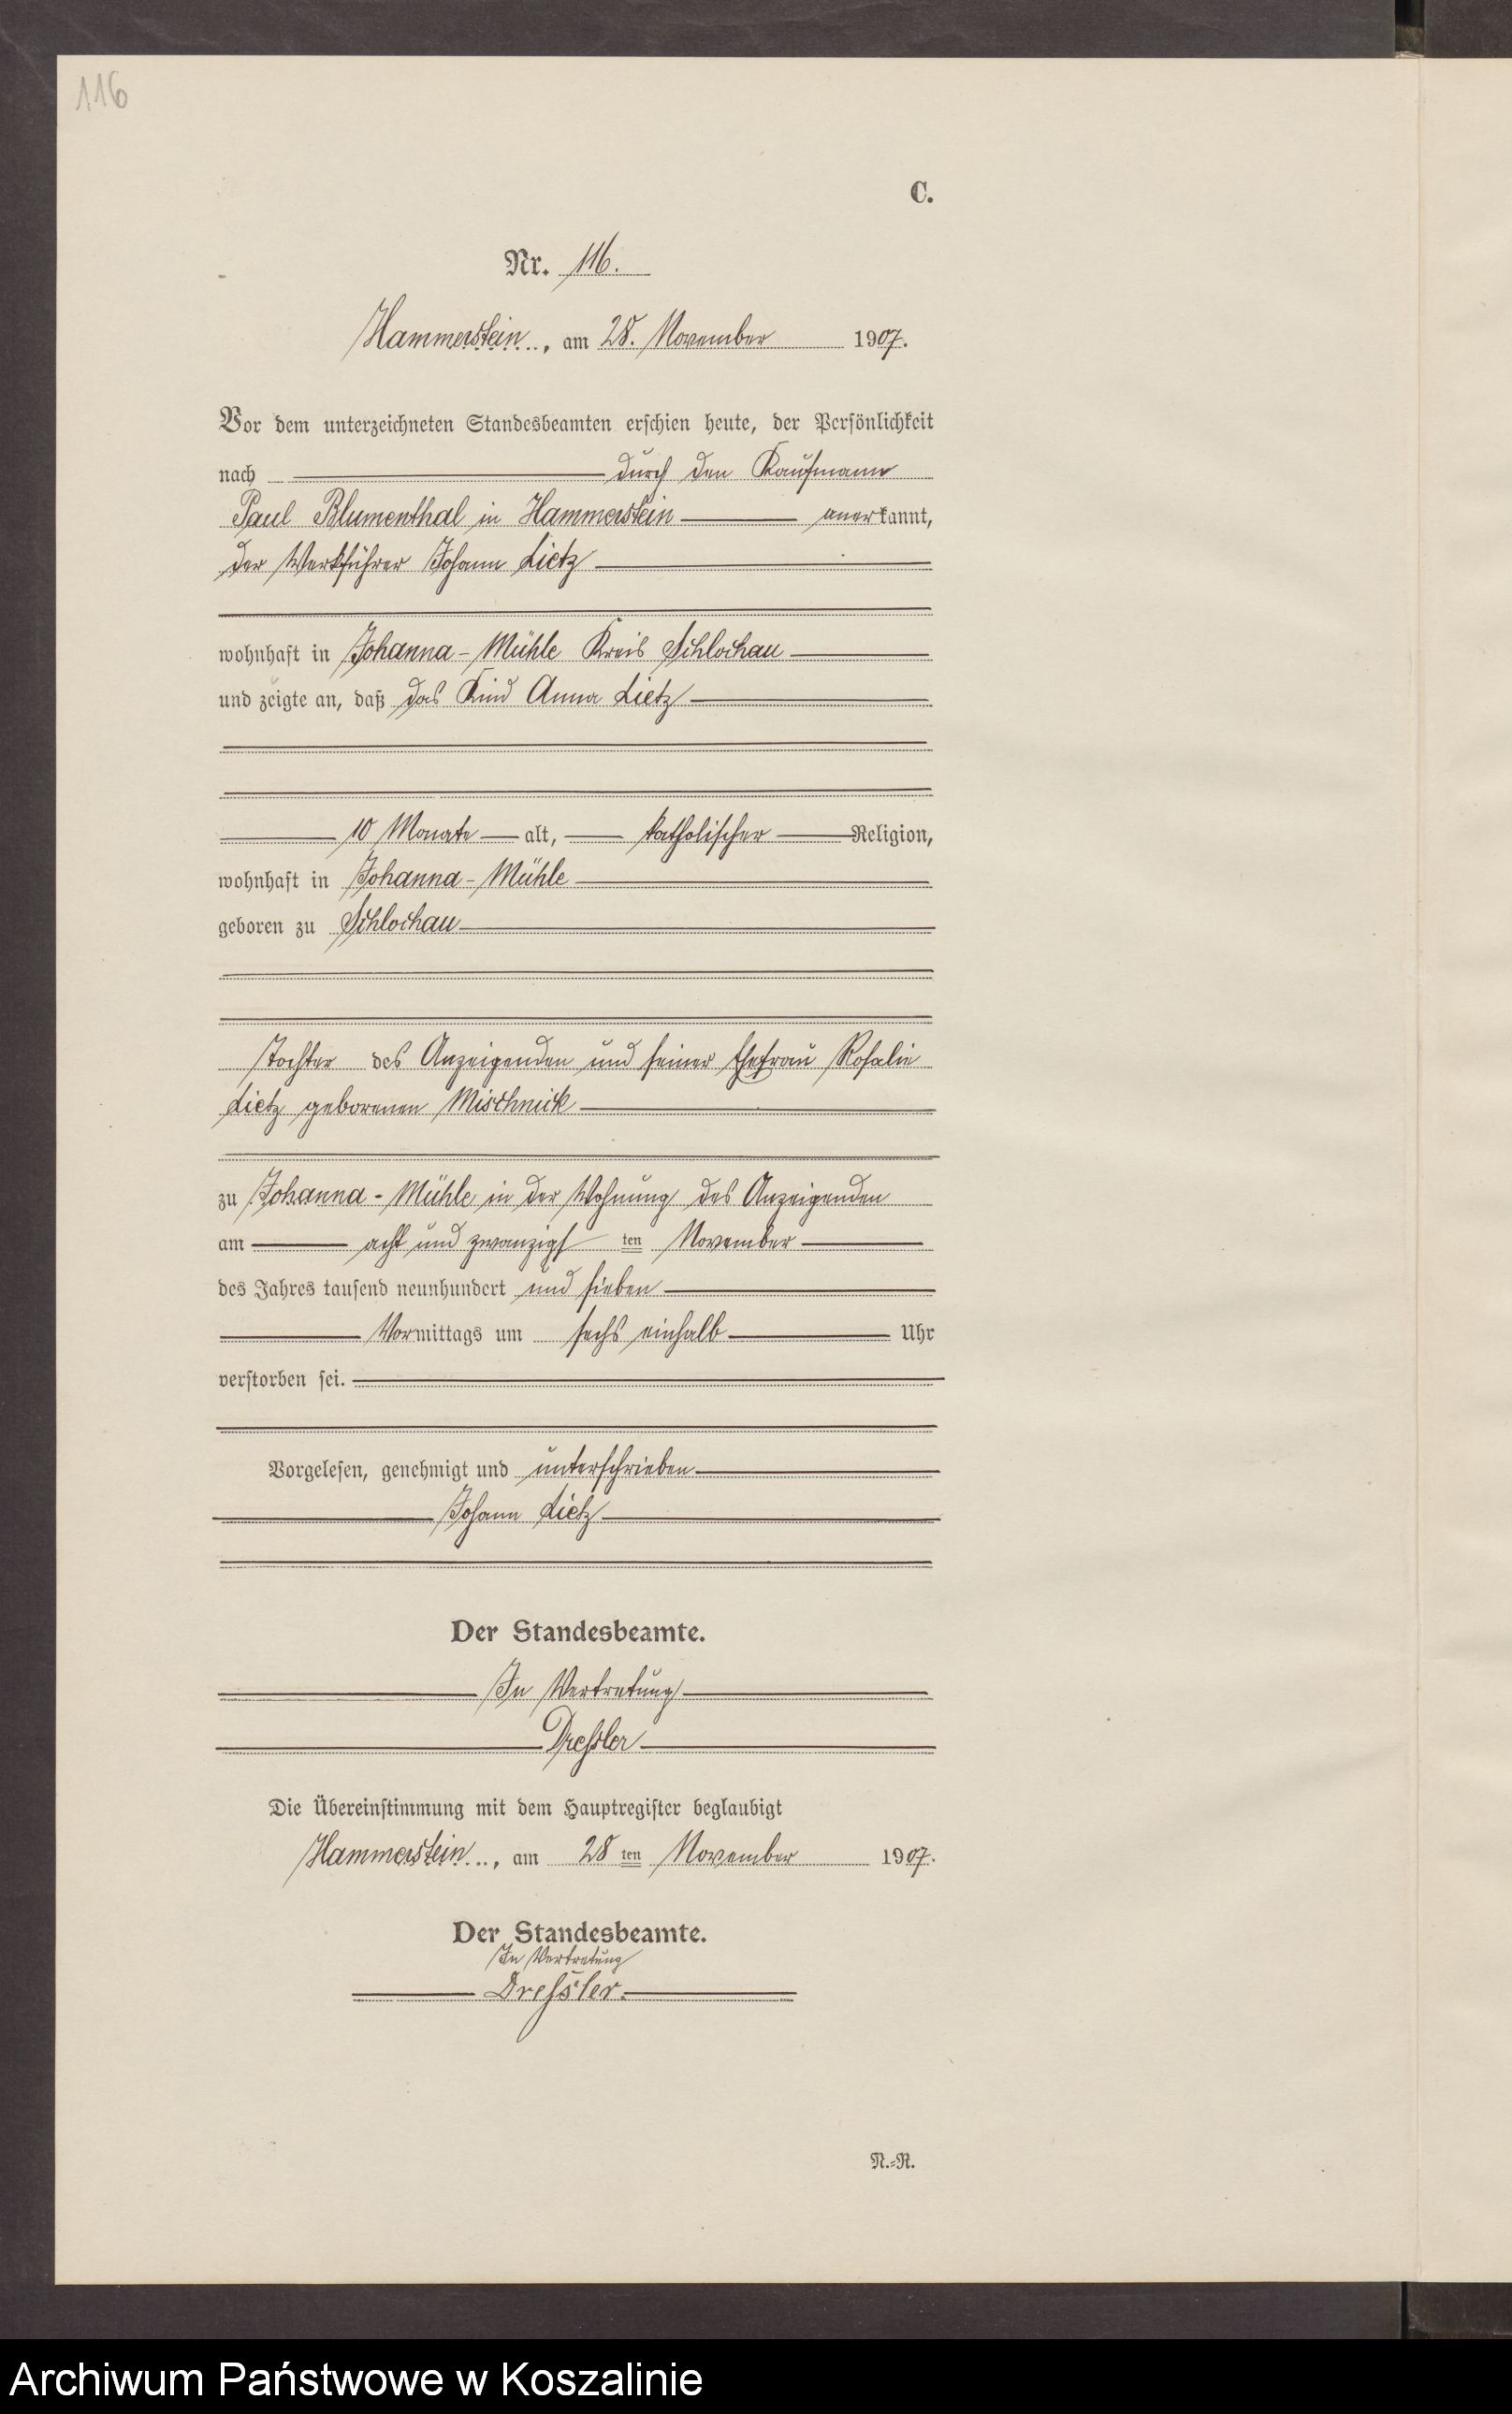 116
C.
Nr. 116.
Hammerstein, am 28. November 1907.
Vor dem unterzeichneten Standesbeamten erschien heute, der Persönlichkeit
nach durch den Kaufmann
Paul Blumenthal in Hammerstein anerkannt,
der Werkführer Johann Lietz
wohnhaft in Johanna-Mühle Kreis Schlochau
und zeigte an, daß das Kind Anna Lietz
10 Monate alt, katholischer Religion,
wohnhaft in Johanna-Mühle
geboren zu Schlochau
Tochter des Anzeigenden und seiner Ehefrau Rosalie
Lietz geborenen Mischnick
zu Johanna-Mühle in der Wohnung des Anzeigenden
am acht und zwanzigsten November
des Jahres tausend neunhundert und sieben
Vormittags um sechs einhalb Uhr
verstorben sei.
Vorgelesen, genehmigt und unterschrieben
Johann Lietz
Der Standesbeamte.
In Vertretung
Dressler
Die Übereinstimmung mit dem Hauptregister beglaubigt
Hammerstein, am 28 ten November 1907.
Der Standesbeamte.
In Vertretung
Dressler.
N.-R.
Archiwum Państwowe w Koszalinie